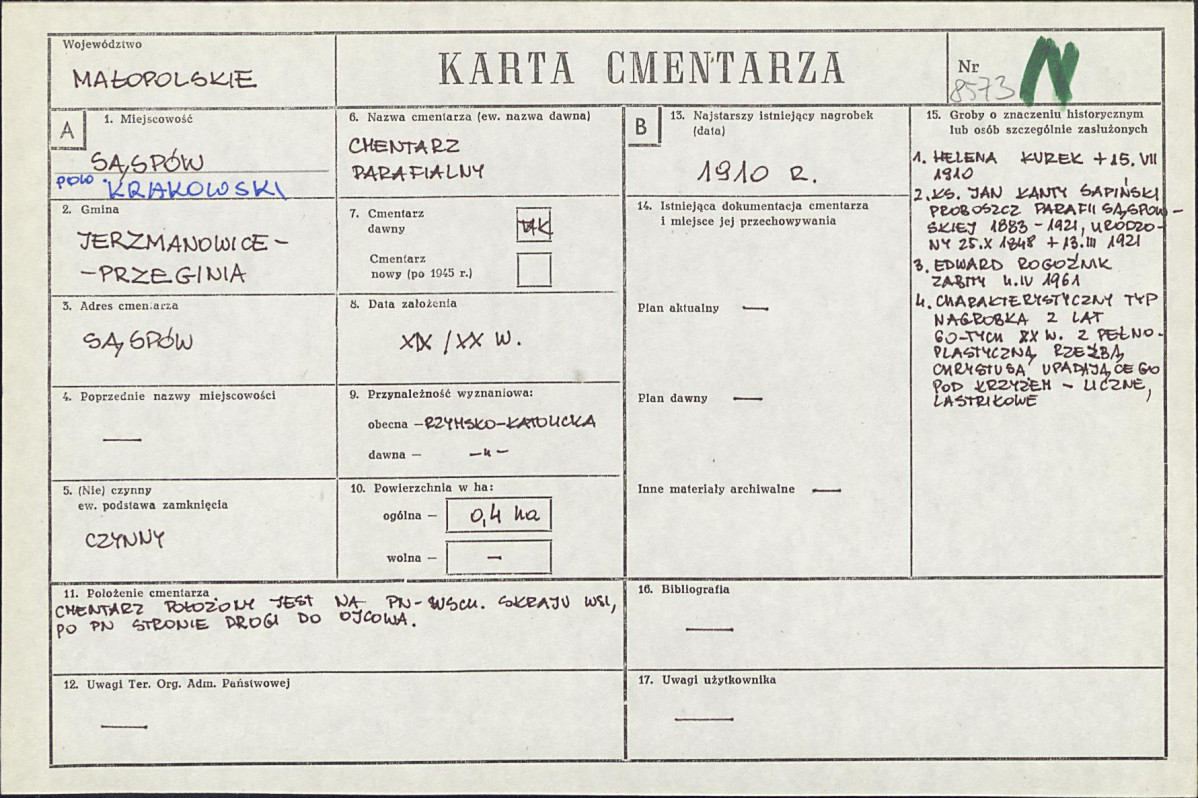 Województwo
MAŁOPOLSKIE
KARTA CMENTARZA
Nr
8573
N
A
1. Miejscowość
SĄSPÓW
POW. KRAKOWSKI
2. Gmina
JERZMANOWICE –
– PRZEGINIA
3. Adres cmentarza
SĄSPÓW
4. Poprzednie nazwy miejscowości
—
5. (Nie) czynny
ew. podstawa zamknięcia
CZYNNY
6. Nazwa cmentarza (ew. nazwa dawna)
CMENTARZ
PARAFIALNY
7. Cmentarz
dawny
TAK
Cmentarz
nowy (po 1945 r.)
8. Data założenia
XIX / XX W.
9. Przynależność wyznaniowa:
obecna – RZYMSKO-KATOLICKA
dawna – –"–
10. Powierzchnia w ha:
ogólna – 0,4 ha
wolna – –
11. Położenie cmentarza
CMENTARZ POŁOŻONY JEST NA PN-WSCH. SKRAJU WSI,
PO PN STRONIE DROGI DO OJCOWA.
12. Uwagi Ter. Org. Adm. Państwowej
—
B
13. Najstarszy istniejący nagrobek
(data)
1910 R.
14. Istniejąca dokumentacja cmentarza
i miejsce jej przechowywania
Plan aktualny —
Plan dawny —
Inne materiały archiwalne —
15. Groby o znaczeniu historycznym
lub osób szczególnie zasłużonych
1. HELENA KUREK + 15. VII
1910
2. KS. JAN KANTY SAPIŃSKI
PROBOSZCZ PARAFII SĄSPOW-
SKIEJ 1883 – 1921, URODZO-
NY 25.X 1848 + 13.III 1921
3. EDWARD ROGOŹNIK
ZABITY 4.IV 1961
4. CHARAKTERYSTYCZNY TYP
NAGROBKA Z LAT
60-TYCH XX W. Z PEŁNO-
PLASTYCZNĄ RZEŹBĄ
CHRYSTUSA UPADAJĄCEGO
POD KRZYŻEM – LICZNE,
LASTRIKOWE
16. Bibliografia
—
17. Uwagi użytkownika
—